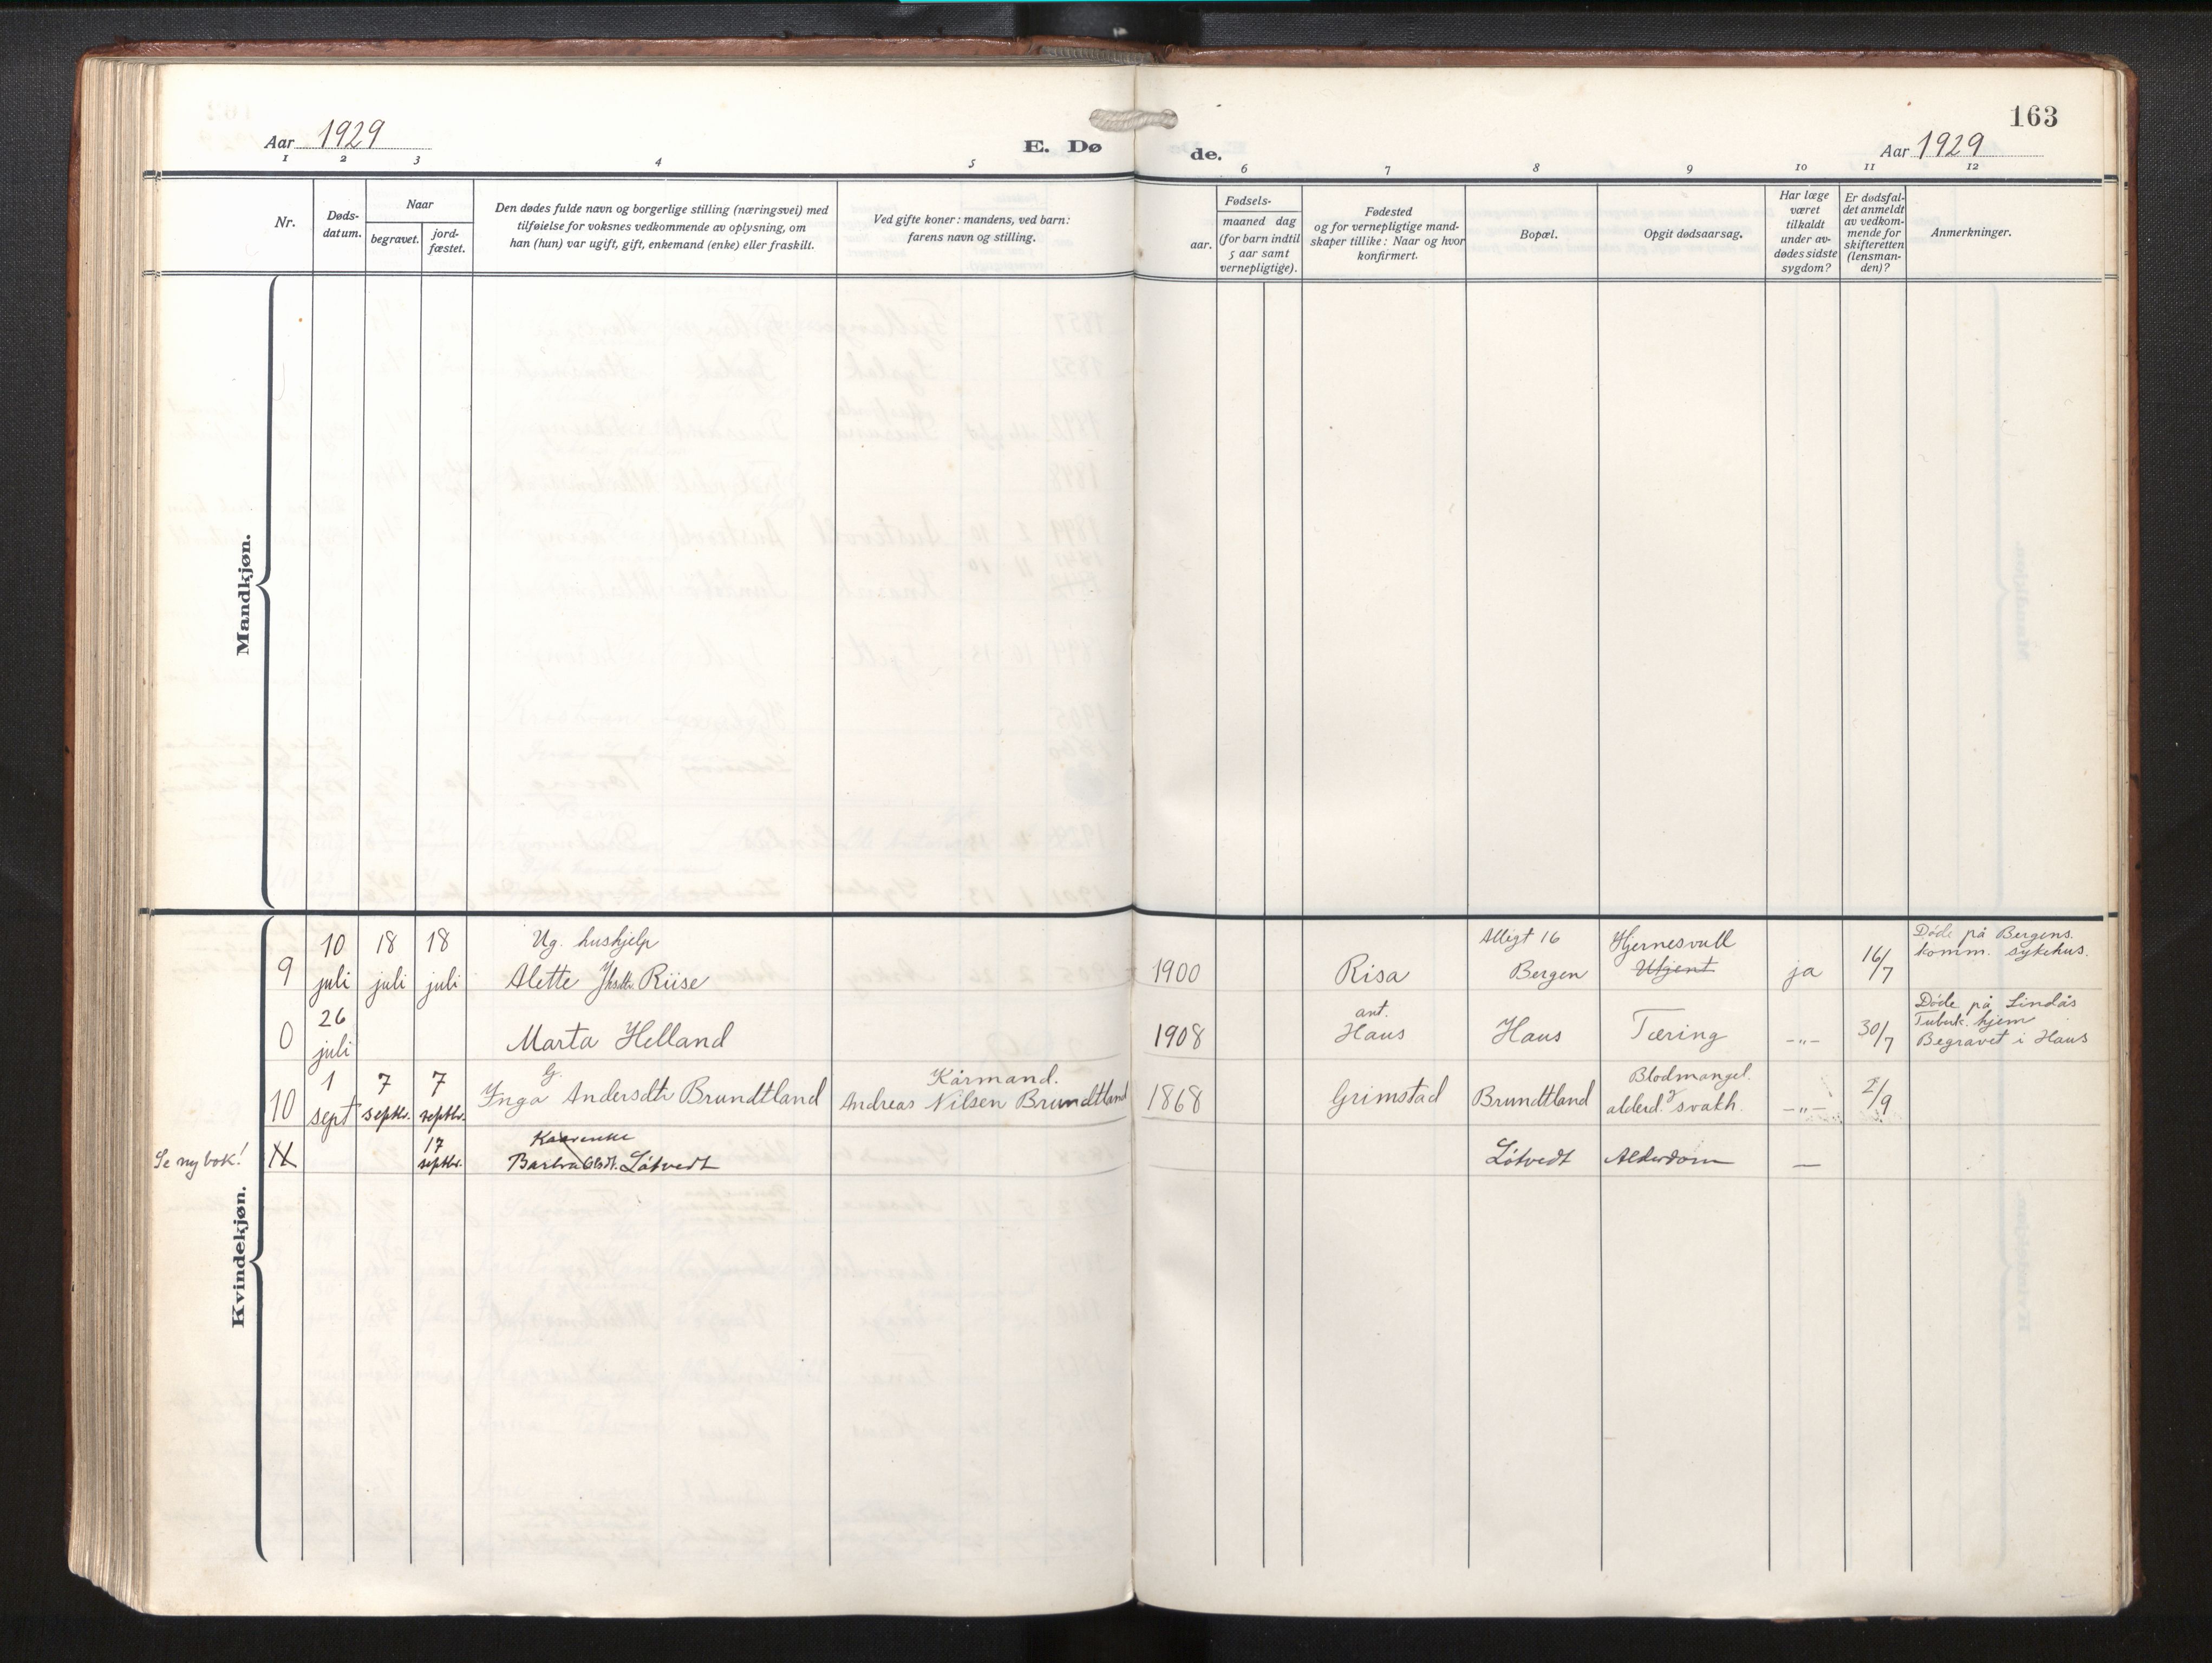 163
Aar 1929
E. Dø
de.
Aar 1929
1 2 3 4 5 6 7 8 9 10 11 12
Nr.
Døds-
datum.
Naar
begravet.
jord-
fæstet.
Den dødes fulde navn og borgerlige stilling (næringsvei) med
tilføielse for voksnes vedkommende av oplysning, om
han (hun) var ugift, gift, enkemand (enke) eller fraskilt.
Ved gifte koner: mandens, ved barn:
farens navn og stilling.
Fødsels-
aar.
maaned dag
(for barn indtil
5 aar samt
vernepligtige).
Fødested
og for vernepligtige mand-
skaper tillike: Naar og hvor
konfirmert.
Bopæl.
Opgit dødsaarsag.
Har læge
været
tilkaldt
under av-
dødes sidste
sygdom?
Er dødsfal-
det anmeldt
av vedkom-
mende for
skifteretten
(lensman-
den)?
Anmerkninger.
Mandkjøn.
Kvindekjøn.
9
10
juli
18
juli
18
juli
Ug. hushjelp
Alette Riise
1900
Risa
16
Bergen
Hjernesvull
ja
16/7
Døde på Bergens.
komm. sykehus.
0
26
juli
Marta Helland
1908
ant.
Haus
Haus
Tæring
-„-
30/7
Døde på Lindås
Tuberk. hjem
Begravet i Haus
10
1
sept
7
septbr.
7
septbr.
G.
Inga Andersdtr Brundtland
Kårmand.
Andreas Nilsen Brundtland
1868
Grimstad
Brundtland
Blodmangel.
alderd. svakh.
-„-
2/9
Se ny bok!
11
17
septbr.
Kaarenke
Barbra Olsdt. Låtvedt
Låtvedt
Alderdom
—